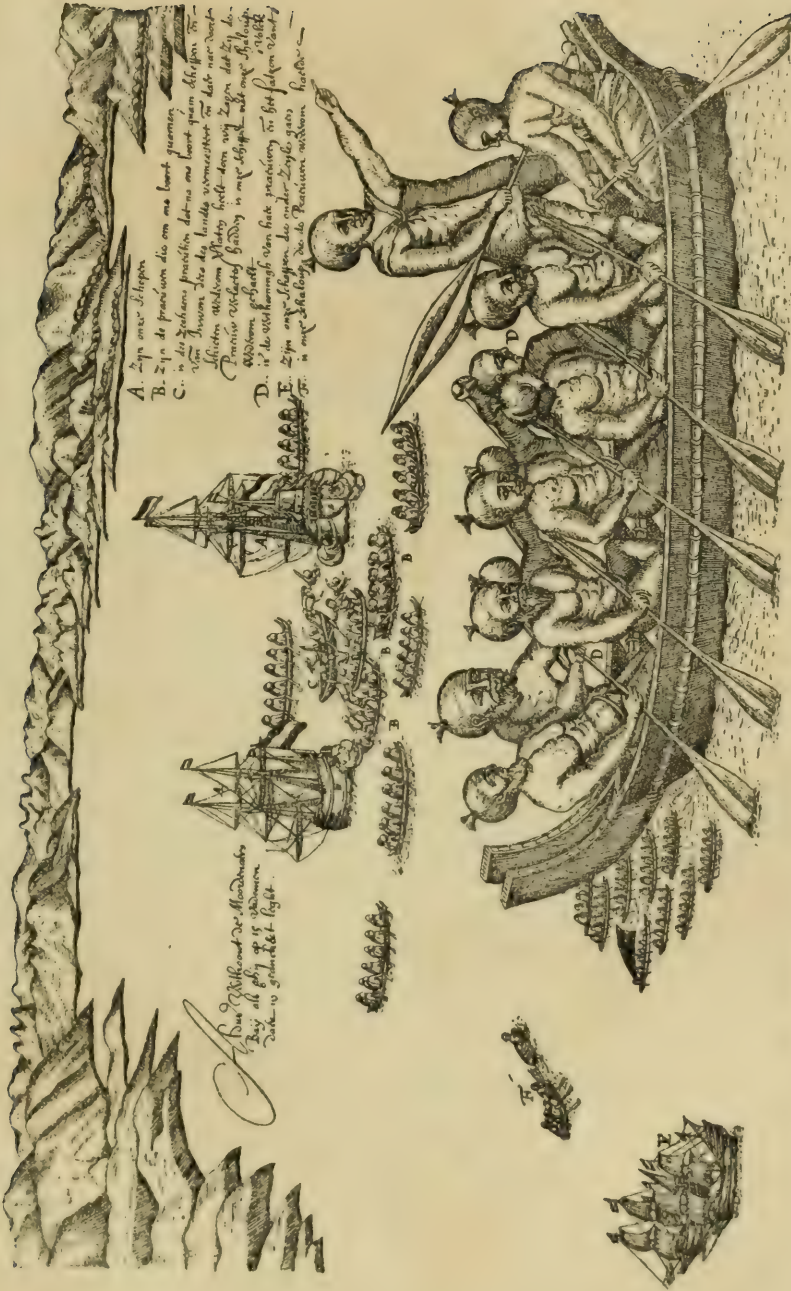 Aldus Verthoont de Moordenaers
Baij als ghij op 15 vademen
daer in geanckert leght.
A. Zijn onze schepen
B. Zijn de praeuwen die om ons boort quamen
C. is des Zeehaens praeutien dat na ons boort quam scheppen en
van Inwoon ders des landts vermeestert en daer naer doort
schieten wederom heeft doen wij Zagen dat Zij de
Praeuw verlaeten hadden is onze schipper met onze schaloup
wederom gehaelt
D. is de verthooningh van hare praeuwen en het fatsoen vant
Volck
E. Zijn onze schepen die onder Zeyle gaen
F. is onze schaloup die de Praeuwen wederom haelde
A
A
B
B
B
C
D
D
E
F